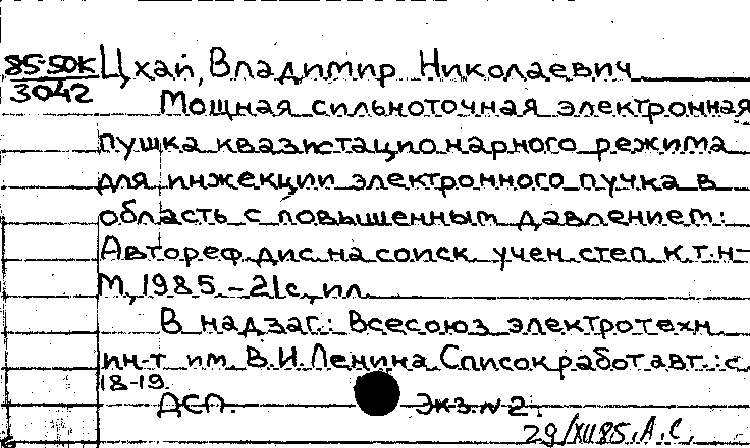 85-50К Цхай, Владимир Николаевич
3042
Мощная сильноточная электронная
пушка квазистационарного режима
для инжекции электронного пучка в
область с повышенным давлением:
Автореф. дис. на соиск. учен. степ. к.т.н-
М., 1985.-21с., ил.
В надзаг.: Всесоюз. электротехн.
ин-т им. В.И. Ленина. Список работ авт.: с.
18-19.
ДСП. Экз. № 2.
29/XII85. А.С.